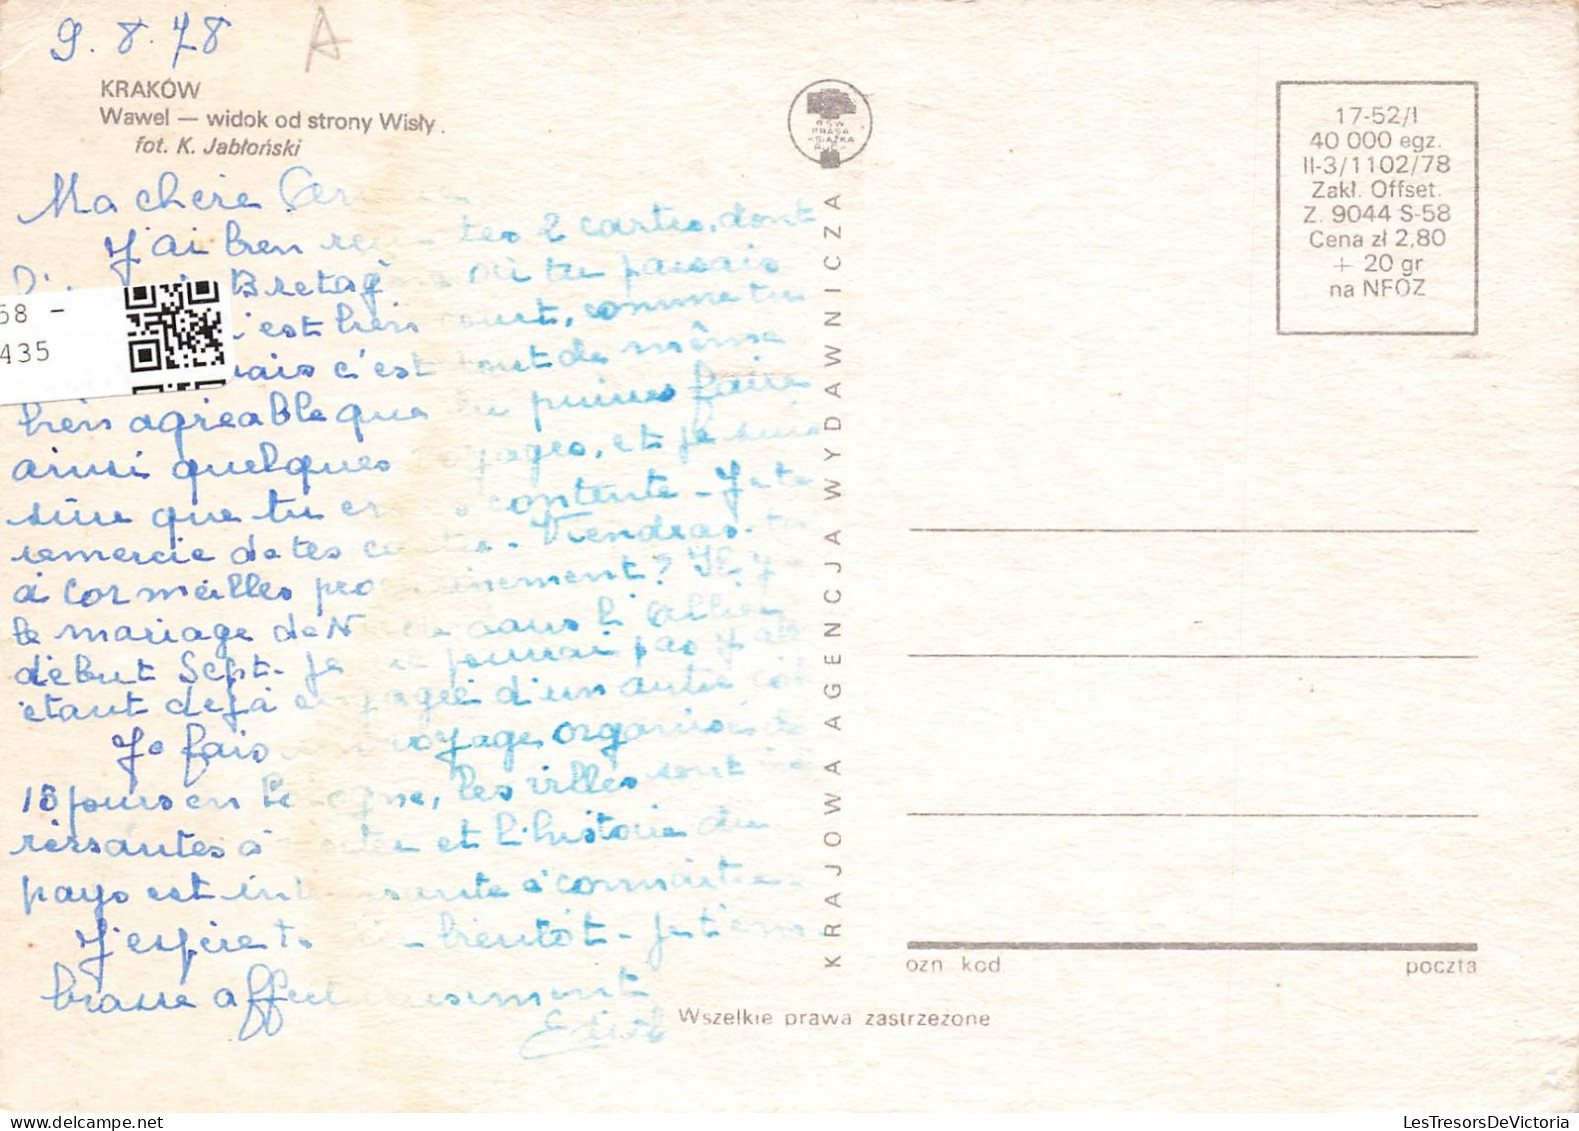 9.8.78
A
KRAKÓW
Wawel — widok od strony Wisły.
fot. K. Jabłoński
Ma chère
J'ai bien tes 2 cartes, dont
Bretag où tu passais
c'est bien court, comme tu
mais c'est tout de même
bien agréable que tu puisses faire
ainsi quelques voyages, et je suis
sûre que tu es contente - Je te
remercie de tes cartes - Viendras-tu
à Cormeilles prochainement? Il y a
le mariage de dans l'Allier
début Sept. Je ne pourrai pas y aller
étant déjà engagée d'un autre côté
Je fais un voyage organisé de
18 jours en Pologne, les villes sont inté
ressantes à visiter et l'histoire du
pays est intéressante à connaître -
J'espère te - bientôt - Je t'em
brasse affectueusement
Edith
58 -
435
RSW
PRASA
KSIĄŻKA
RUCH
KRAJOWA AGENCJA WYDAWNICZA
17-52/I
40 000 egz.
II-3/1102/78
Zakł. Offset.
Z. 9044 S-58
Cena zł 2,80
+ 20 gr
na NFOZ
ozn. kod.
poczta
Wszelkie prawa zastrzeżone
LesTresorsDeVictoria